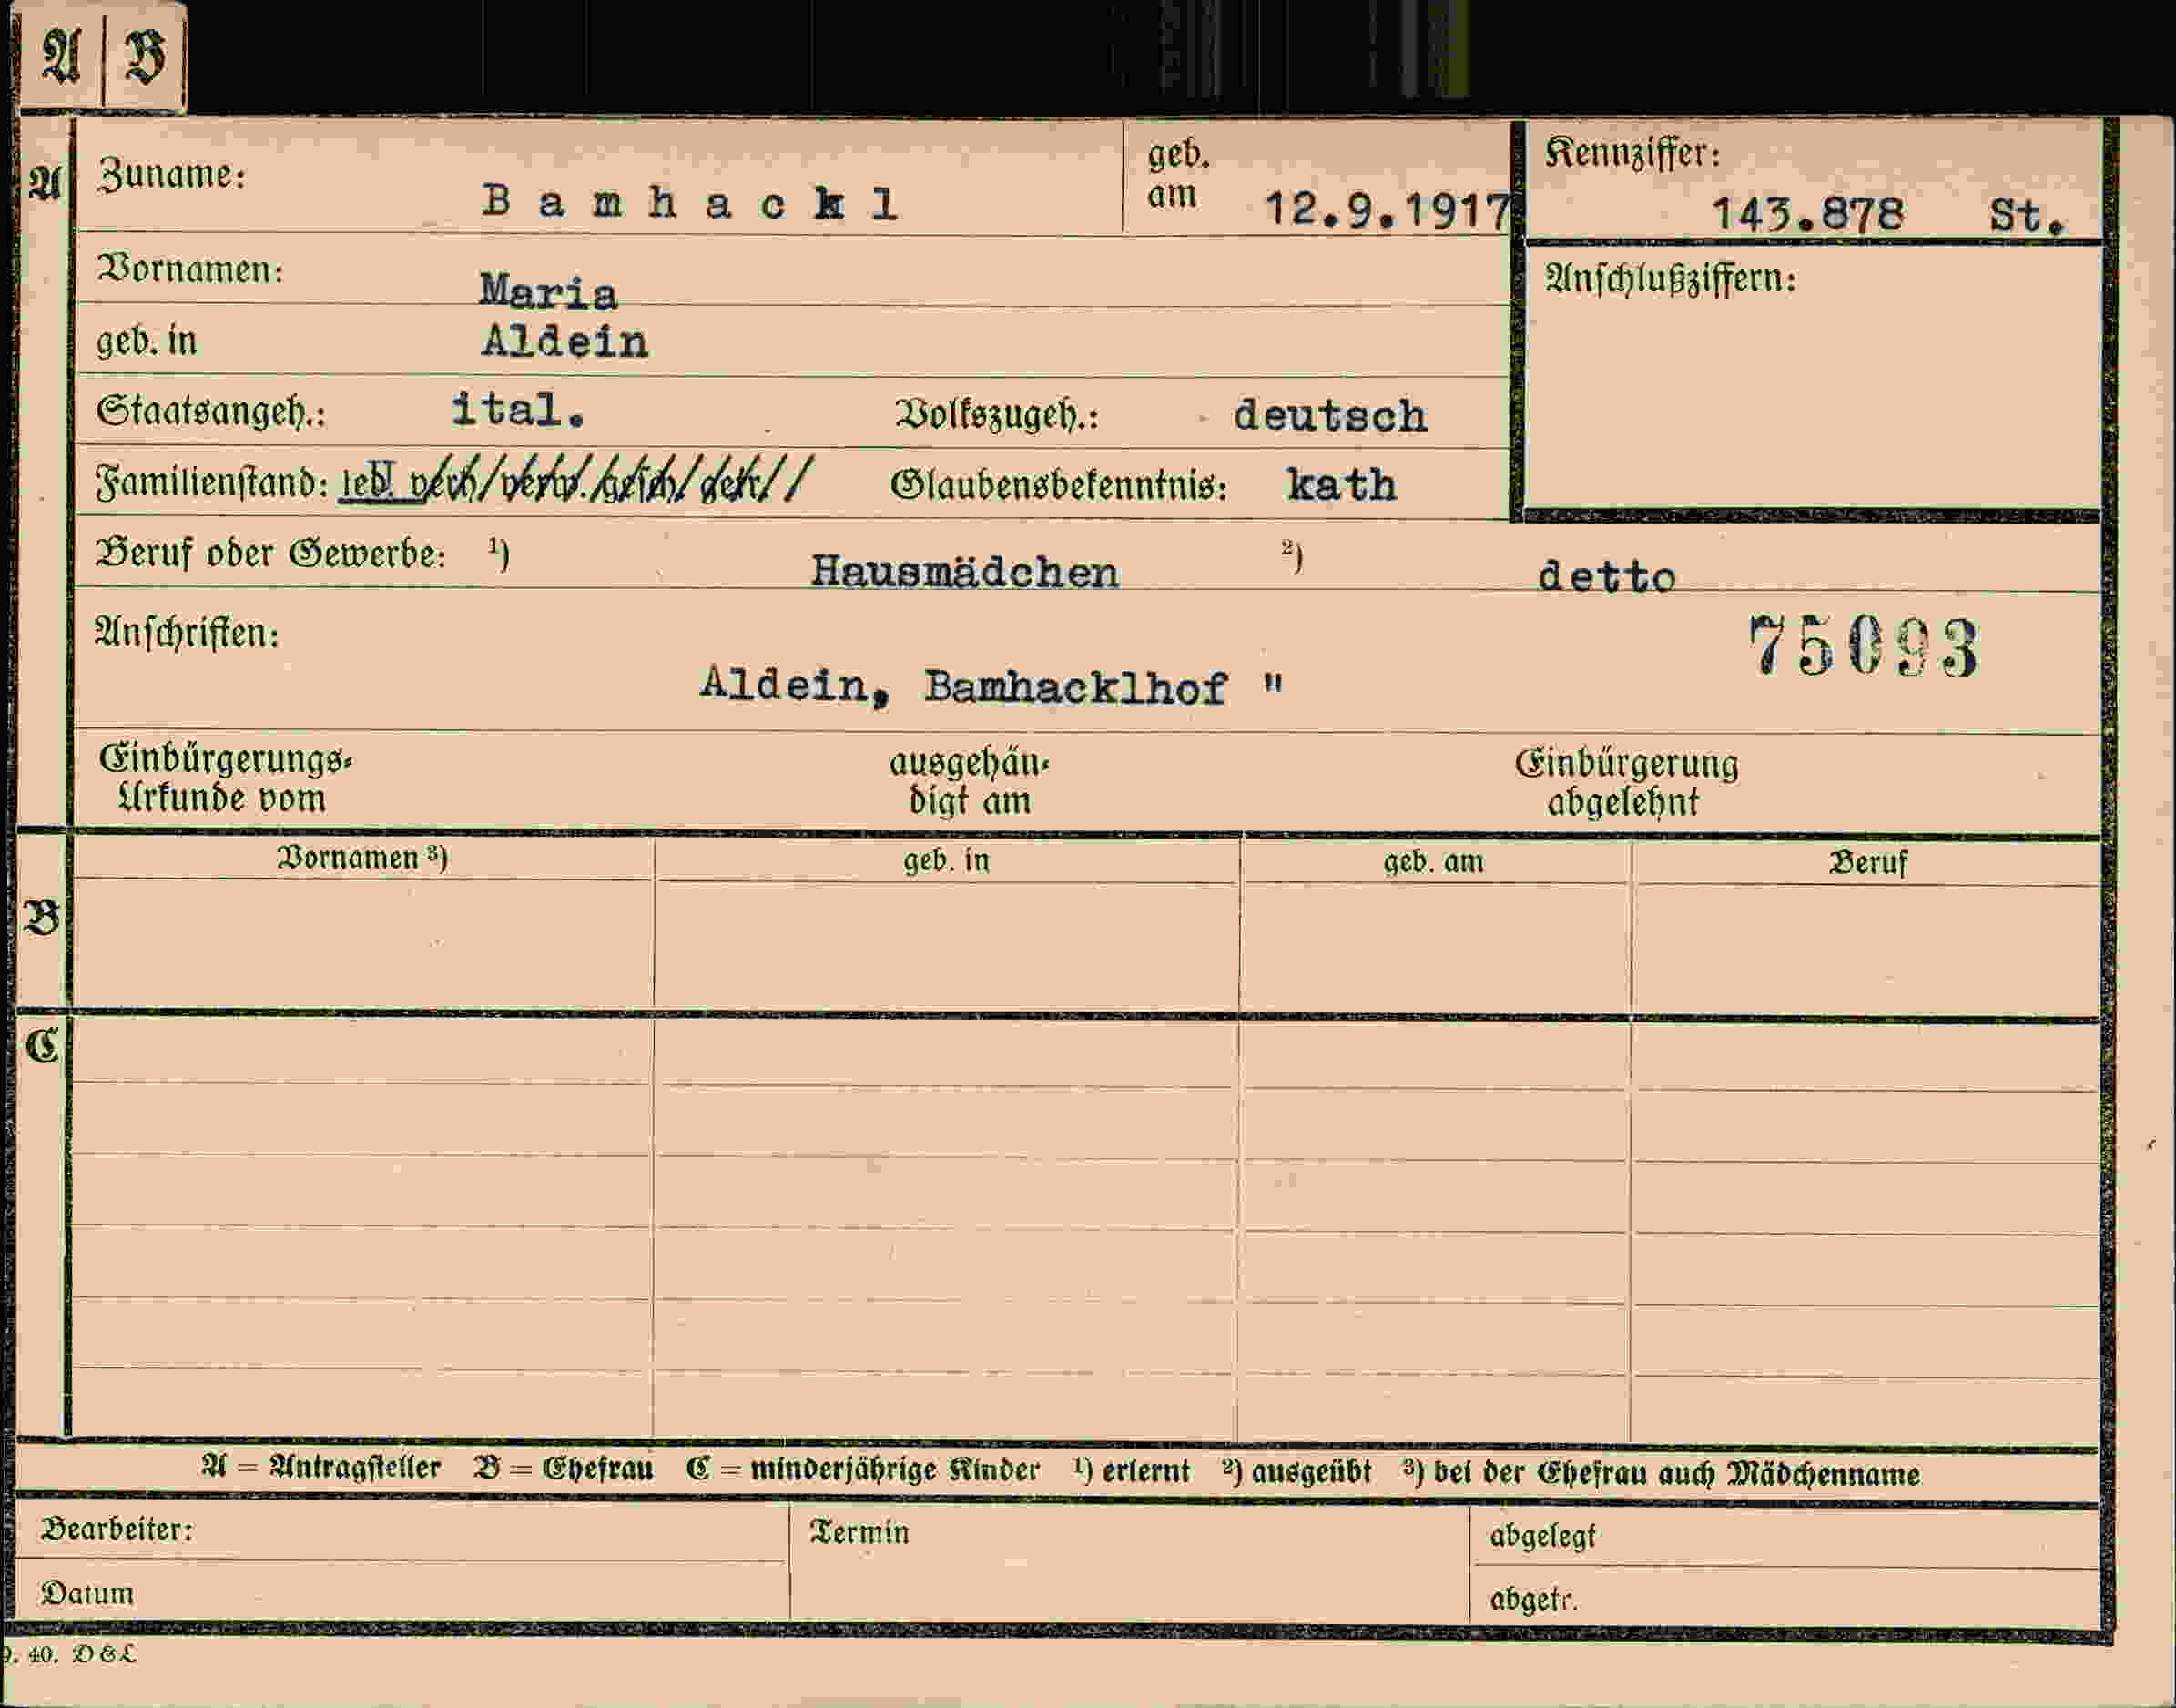 A B
A Zuname: Bamhackl geb. am 12.9.1917 Kennziffer: 143.878 St.
Vornamen: Maria Anschlußziffern:
geb. in Aldein
Staatsangeh.: ital. Volkszugeh.: deutsch
Familienstand: led. verh. verw. gesch. Glaubensbekenntnis: kath
Beruf oder Gewerbe: ¹) Hausmädchen ²) detto
Anschriften: 75093
Aldein, Bamhacklhof "
Einbürgerungs- ausgehän- Einbürgerung
Urkunde vom digt am abgelehnt
Vornamen ³) geb. in geb. am Beruf
B
C
A = Antragsteller B = Ehefrau C = minderjährige Kinder ¹) erlernt ²) ausgeübt ³) bei der Ehefrau auch Mädchenname
Bearbeiter: Termin abgelegt
Datum abgetr.
9. 40. D & L